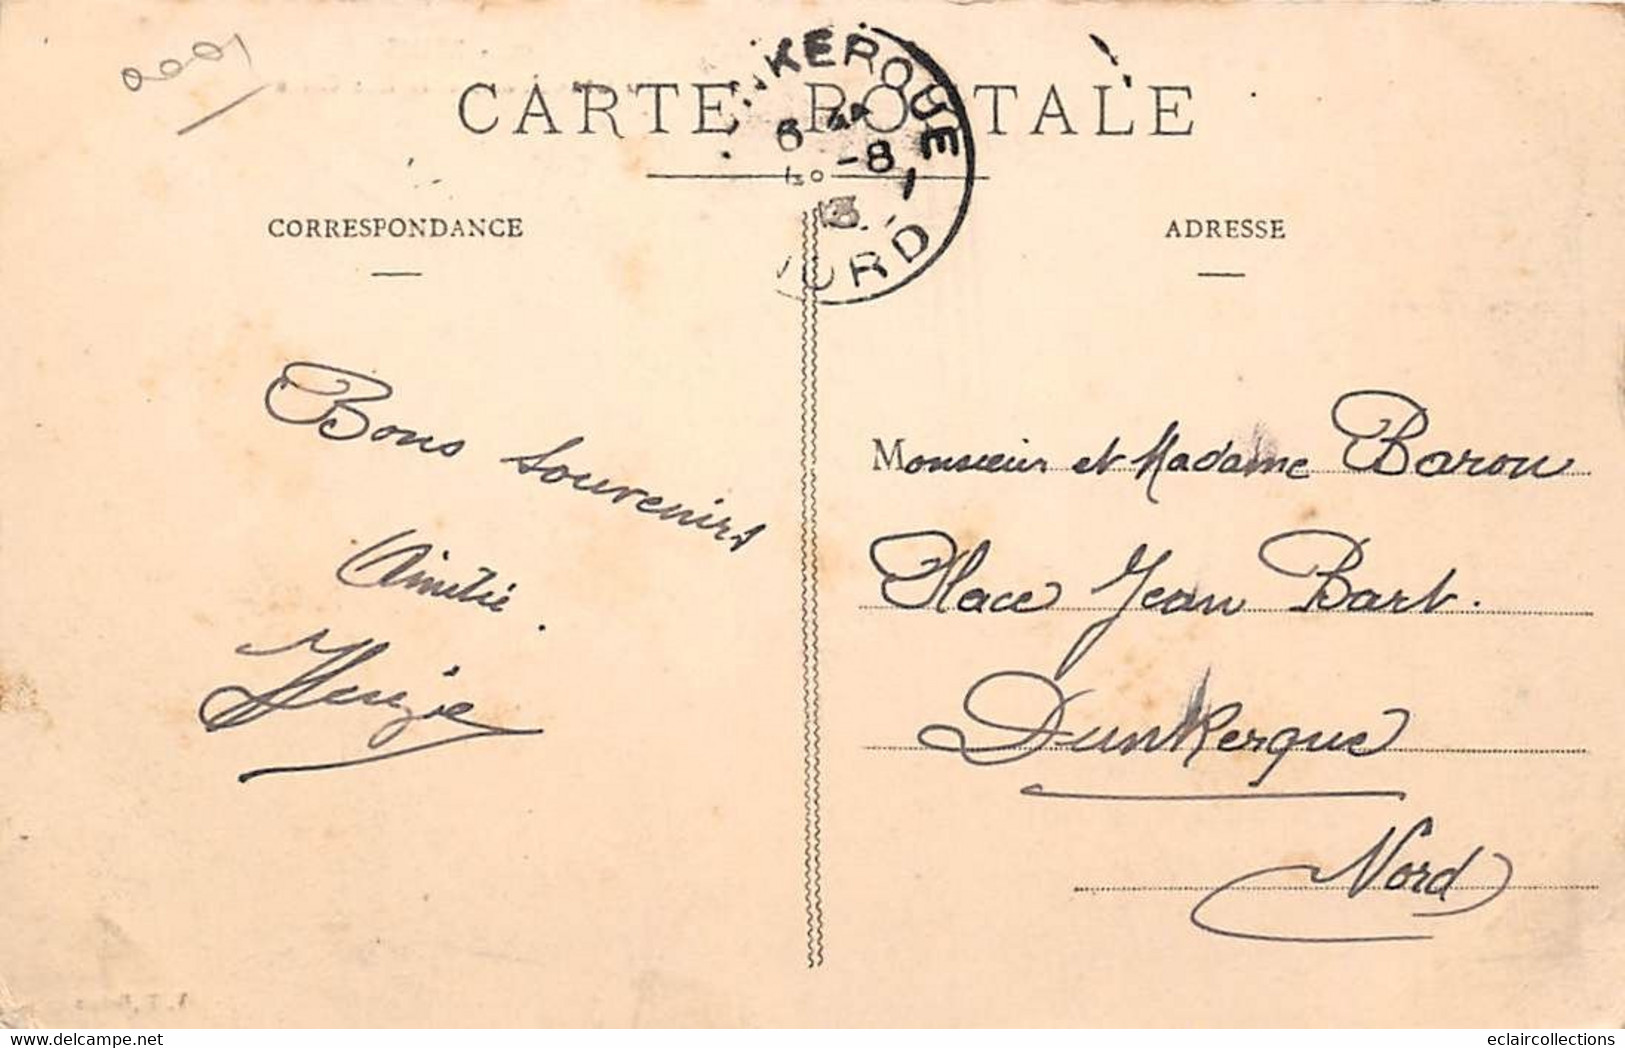 CARTE POSTALE
KERQUE
6
-8
13
NORD
CORRESPONDANCE
ADRESSE
Bons souvenirs
Amitié.
Monsieur et Madame Baron
Place Jean Bart.
Dunkerque
Nord
eclaircollections